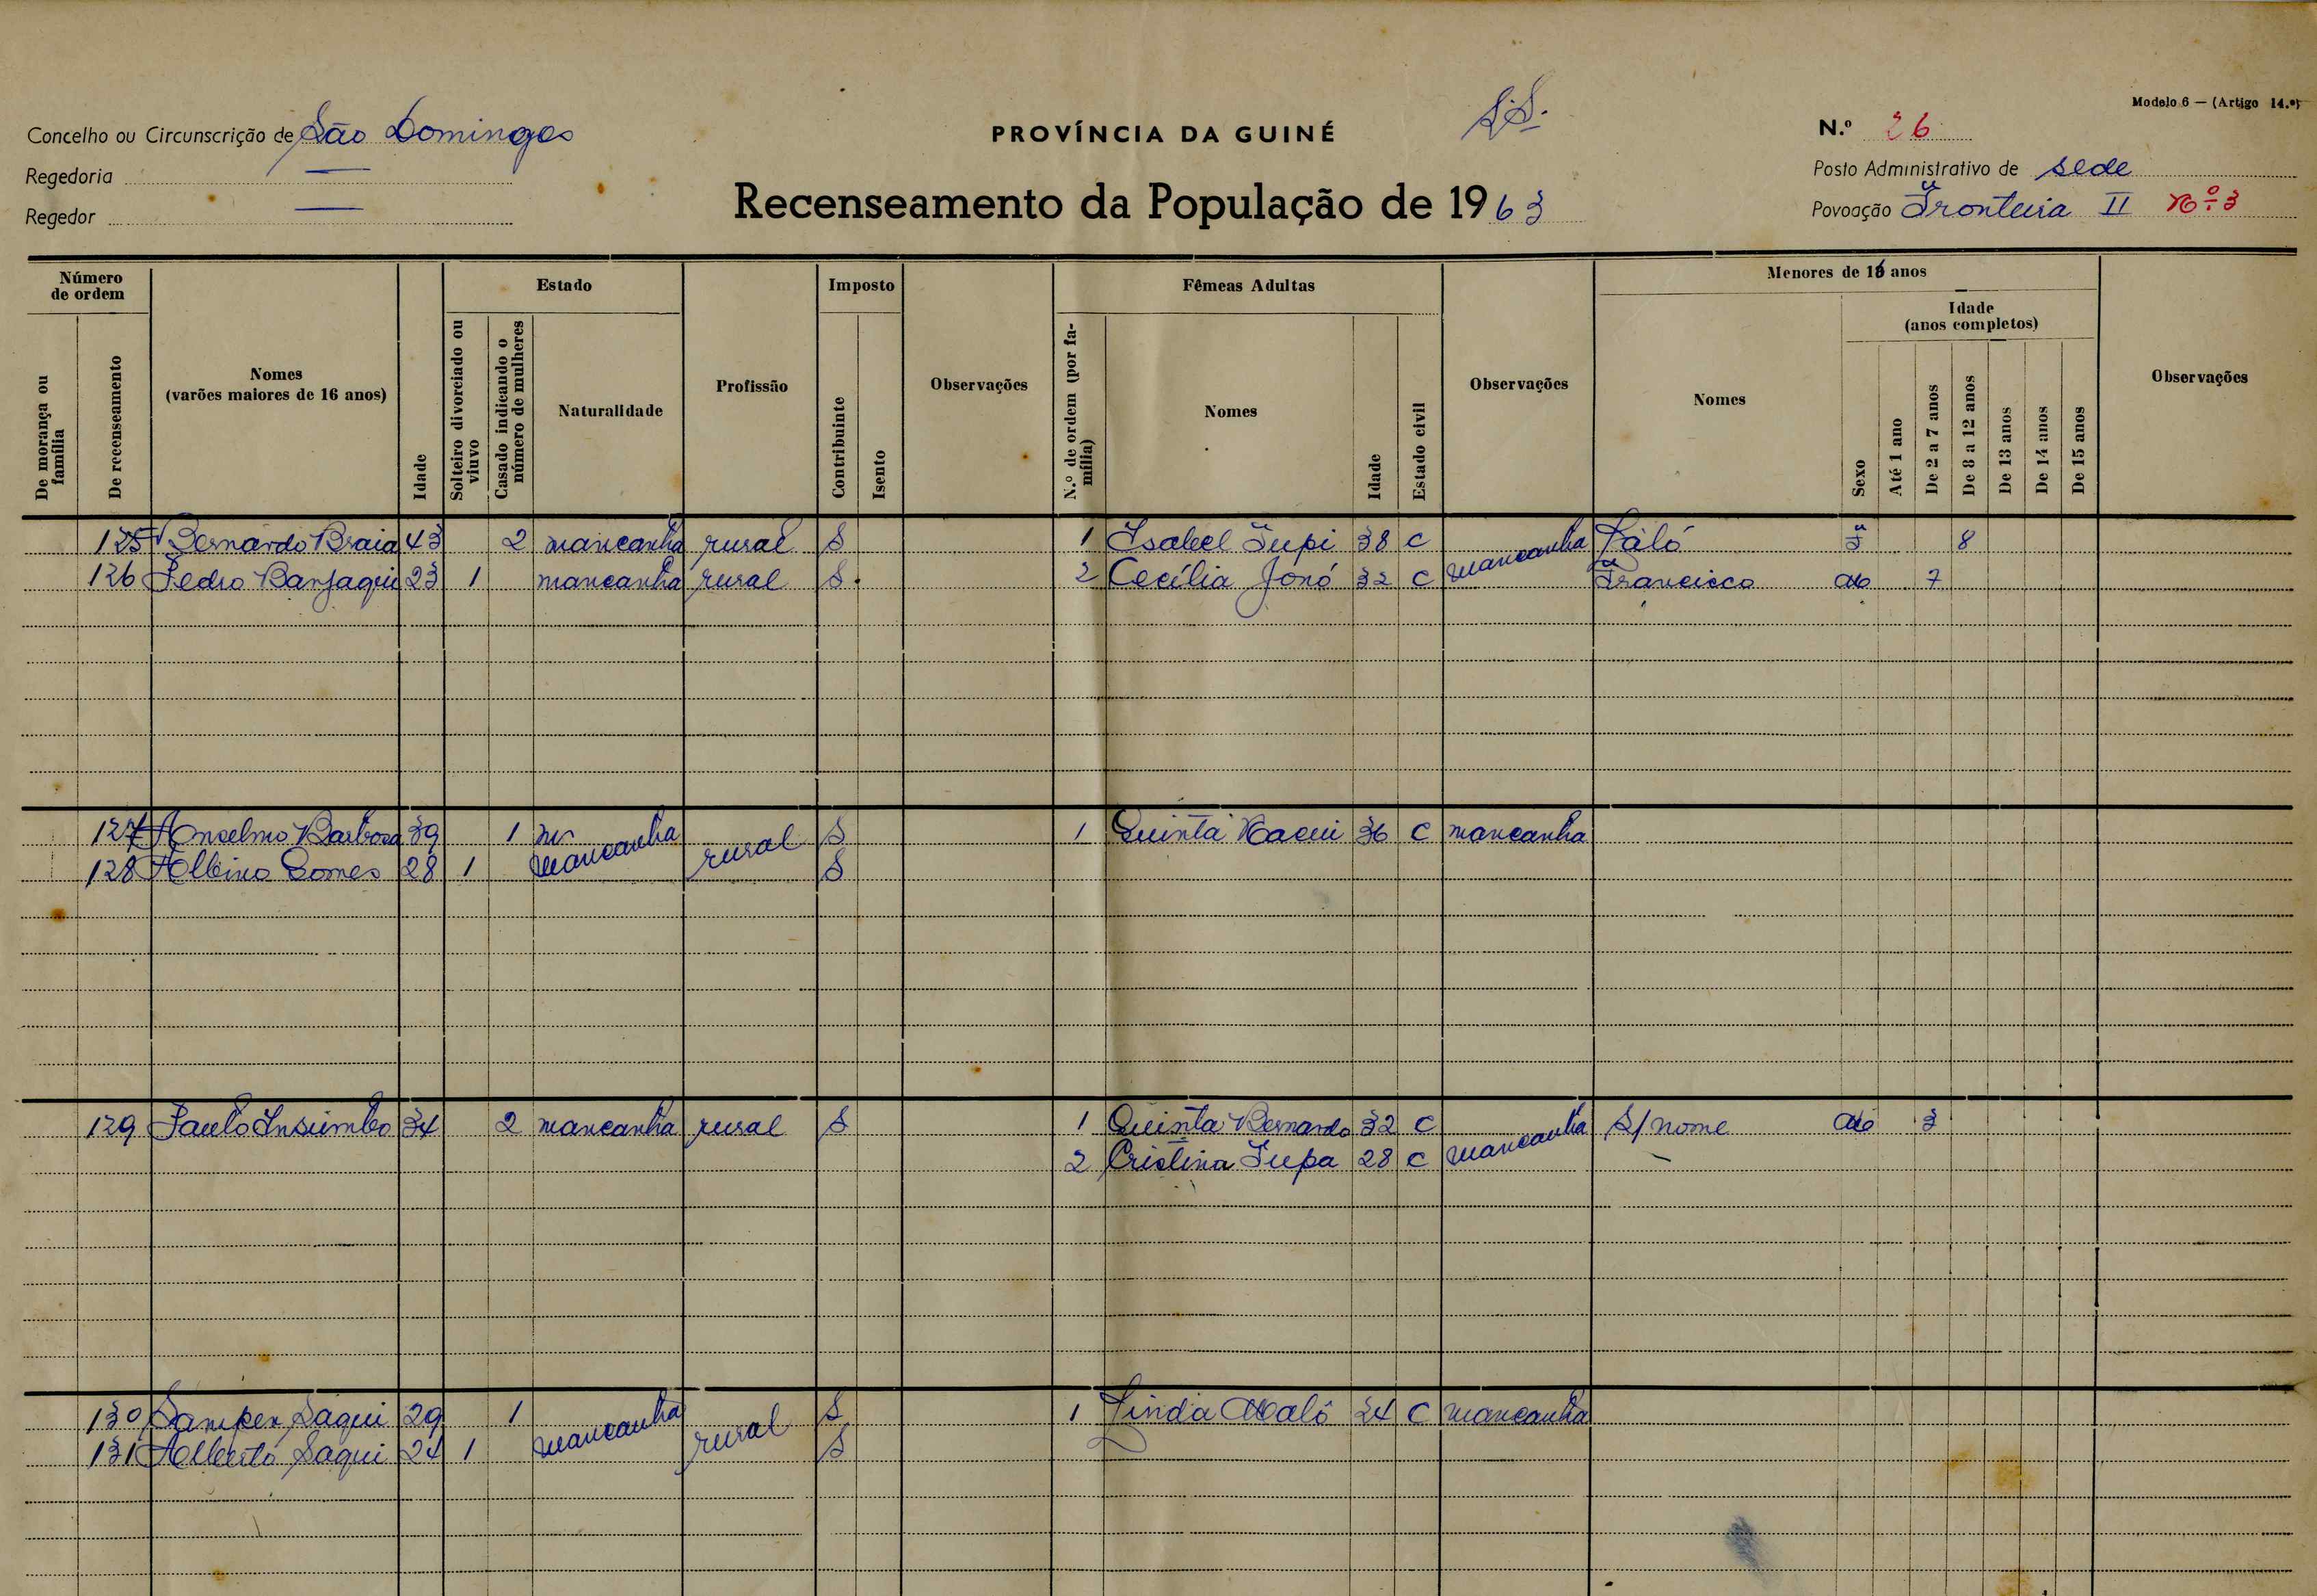 Modelo 6 — (Artigo 14.º)
Concelho ou Circunscrição de São Domingos
PROVÍNCIA DA GUINÉ
N.º 26
Regedoria —
Posto Administrativo de sede
Regedor —
Recenseamento da População de 1963
Povoação Fronteira II Nº 3
Número de ordem
Estado
Imposto
Fêmeas Adultas
Menores de 16 anos
De morança ou família
De recenseamento
Nomes (varões maiores de 16 anos)
Idade
Solteiro divorciado ou viuvo
Casado indicando o número de mulheres
Naturalidade
Profissão
Contribuinte
Isento
Observações
N.º de ordem (por família)
Nomes
Idade
Estado civil
Observações
Nomes
Sexo
Idade (anos completos)
Até 1 ano
De 2 a 7 anos
De 8 a 12 anos
De 13 anos
De 14 anos
De 15 anos
Observações
125 Bernardo Braia 43 2 mancanha rural S 1 Isabel Tupi 38 C mancanha F 8
126 Pedro Banjaqui 23 1 mancanha rural S. 2 Cecília Jonó 32 C Francisco 7
127 Anselmo Barbosa 39 1 mancanha rural S 1 Quinta 36 C mancanha
128 Albino Gomes 28 1 S
129 Paulo Insumbo 34 2 mancanha rural S 1 Quinta Bernardo 32 C mancanha S/ nome 3
2 Cristina Tupa 28 C
130 Sampen Saqui 29 1 mancanha rural S 1 Linda Maló 24 C mancanha
131 Alberto Saqui 24 1 S